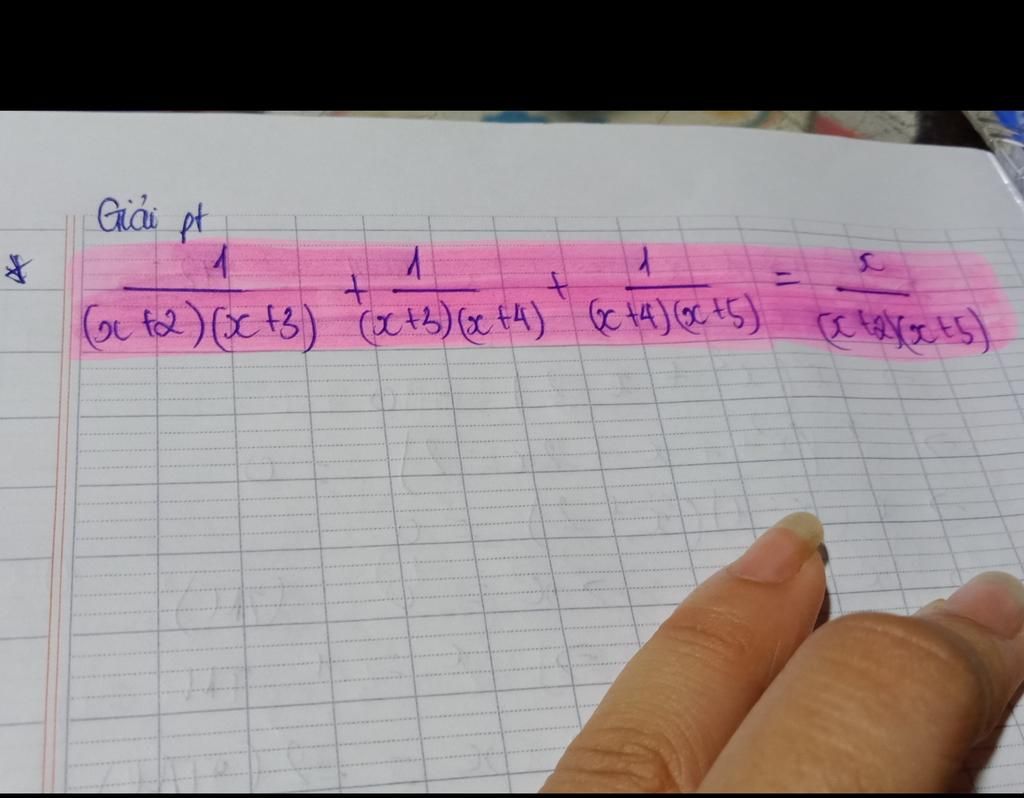 Giải pt
* 1/((x+2)(x+3)) + 1/((x+3)(x+4)) + 1/((x+4)(x+5)) = x/((x+2)(x+5))